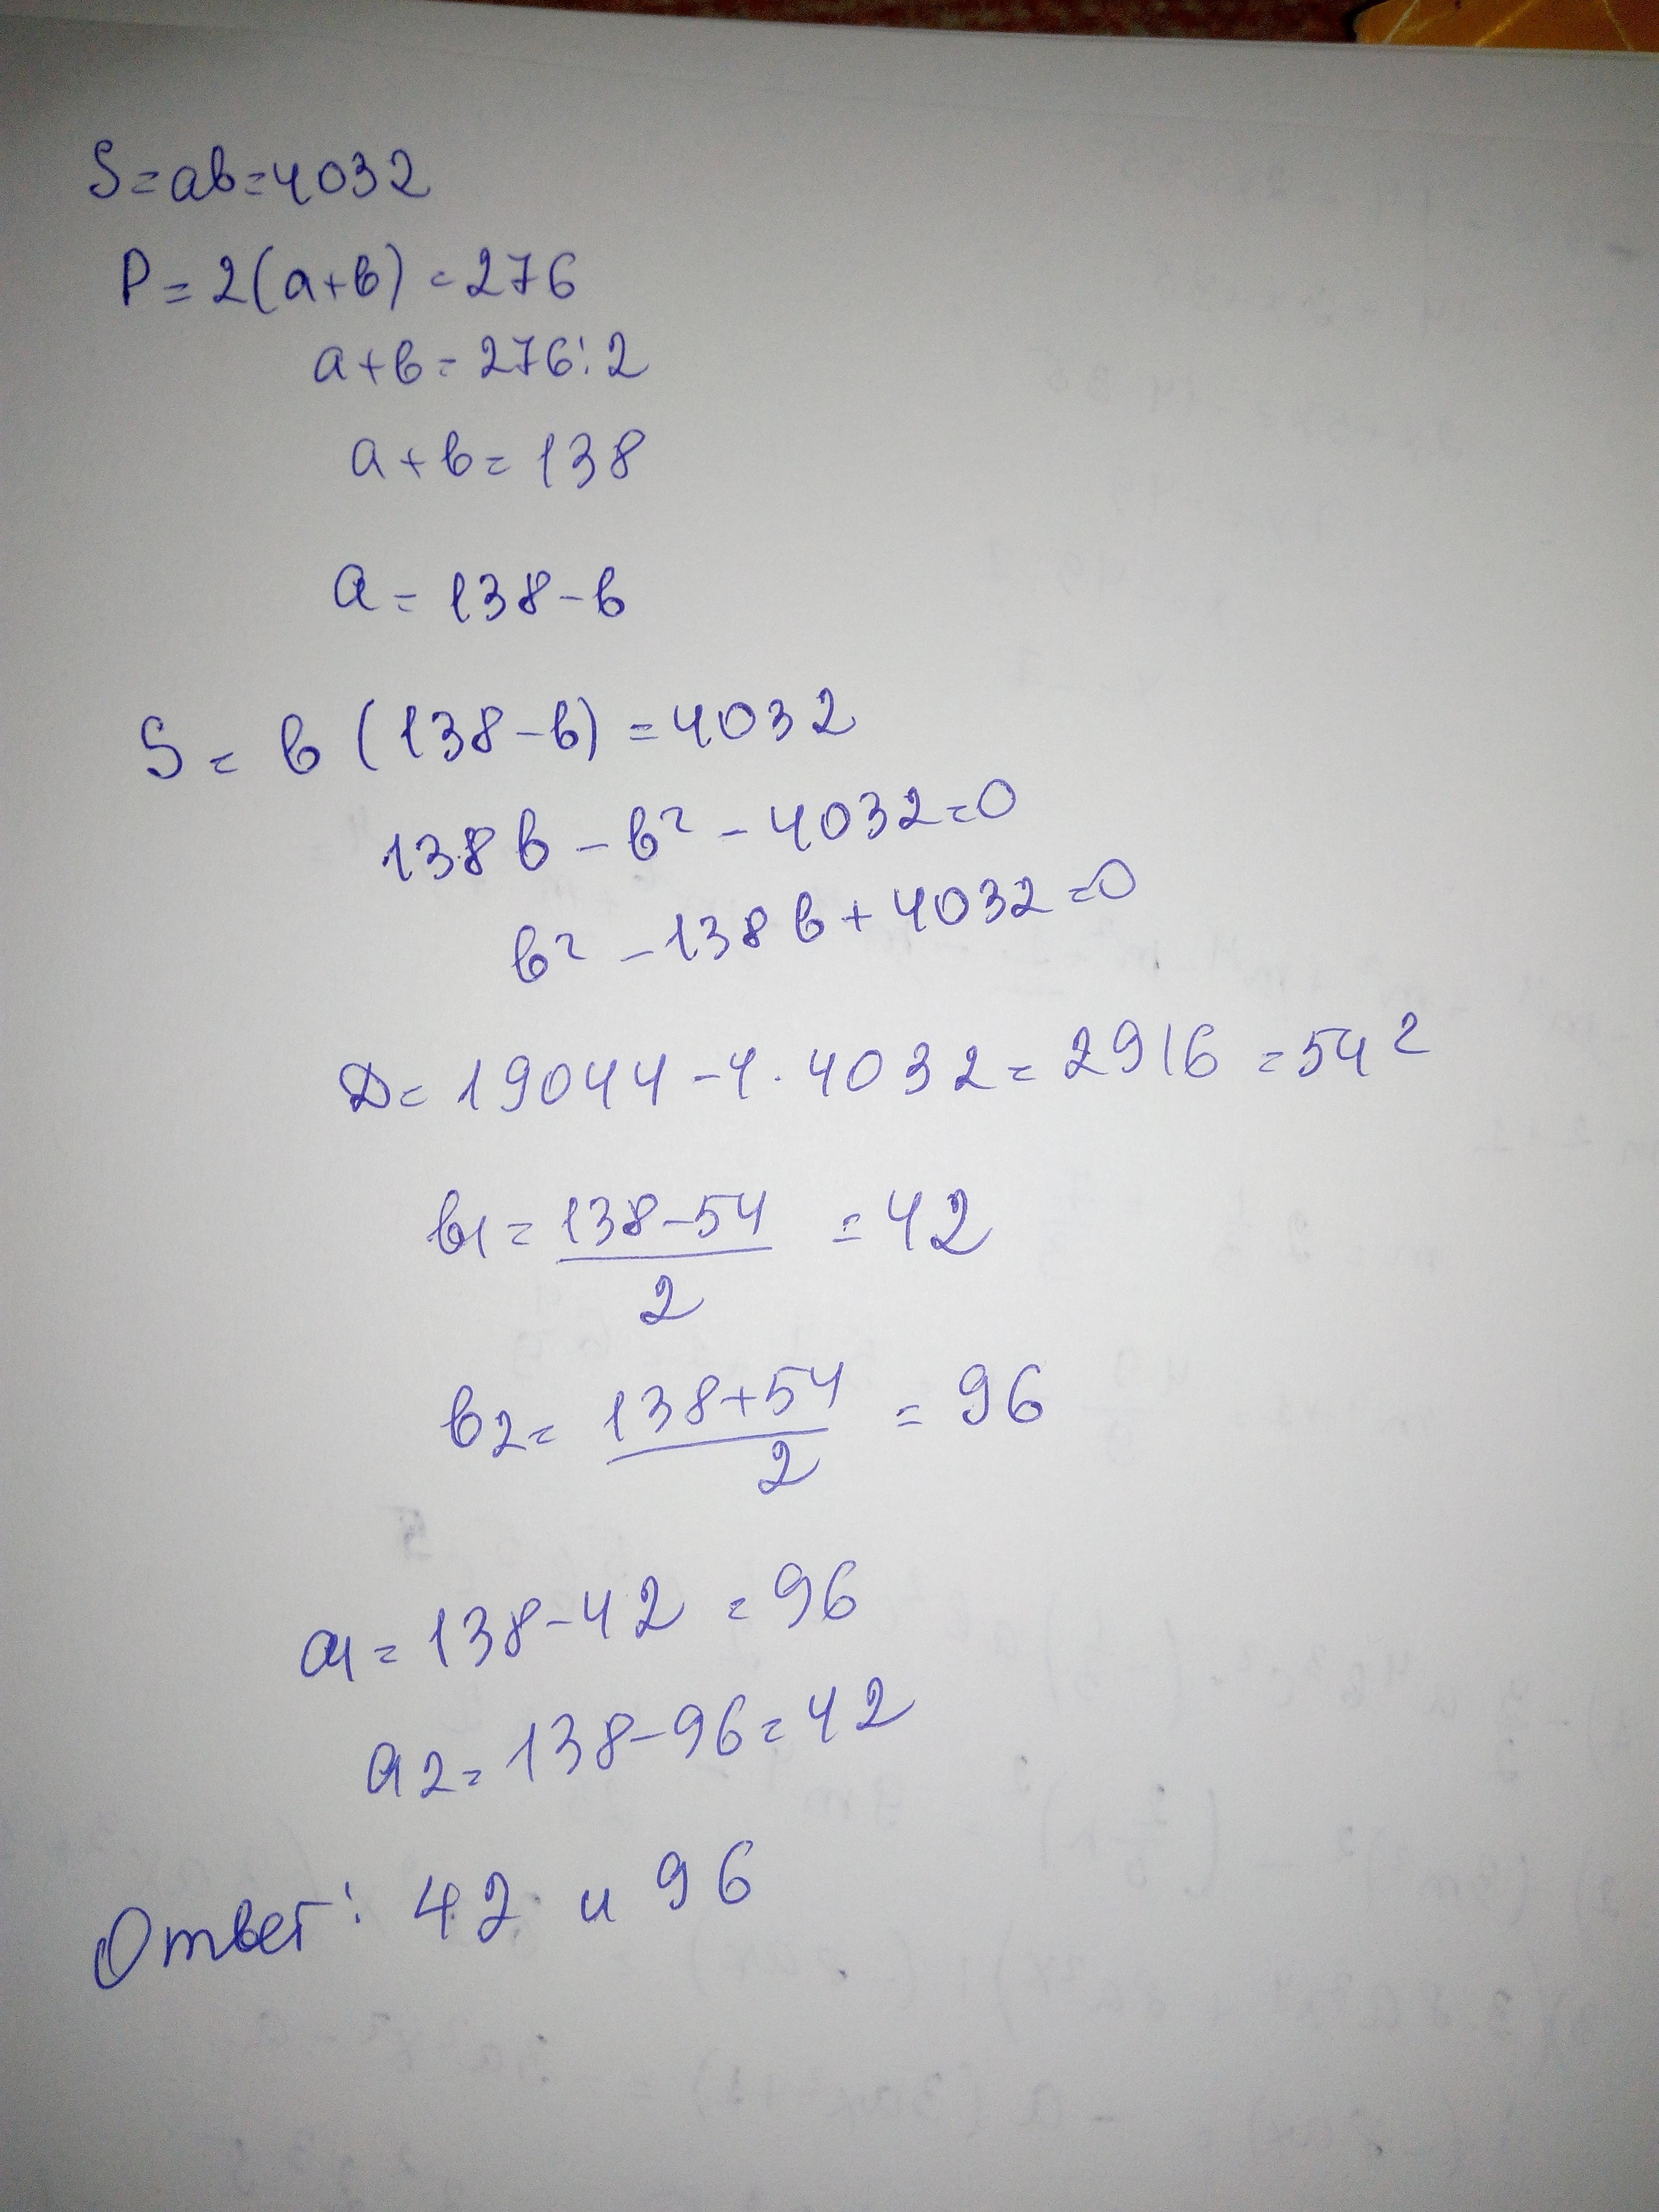 S=ab=4032
P=2(a+b)=276
a+b=276:2
a+b=138
a=138-b
S=b(138-b)=4032
138b-b²-4032=0
b²-138b+4032=0
D=19044-4·4032=2916=54²
b1=138-54/2=42
b2=138+54/2=96
a1=138-42=96
a2=138-96=42
Ответ: 42 и 96